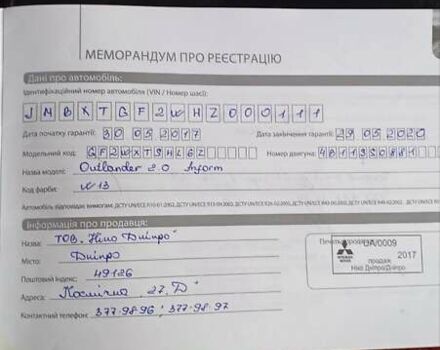 МЕМОРАНДУМ ПРО РЕЄСТРАЦІЮ
Дані про автомобіль:
Ідентифікаційний номер автомобіля (VIN / Номер шасі):
JMBXTGF2WHZ000111
Дата початку гарантії: 30 05 2017 Дата закінчення гарантії: 29 05 2020
Модельний код: GF2WXTSHL6Z Номер двигуна: 4B11
Назва моделі: Outlander 2.0 Inform
Код фарби: W13
Автомобіль відповідає вимогам:
Інформація про продавця:
Назва: ТОВ „Ніко Дніпро"
Місто: Дніпро
Поштовий індекс: 49126
Адреса: Космічна 27 Д
Контактний телефон: 377-98-96; 377-98-97
UA/0009
2017
продаж
Ніко Дніпро/Дніпро